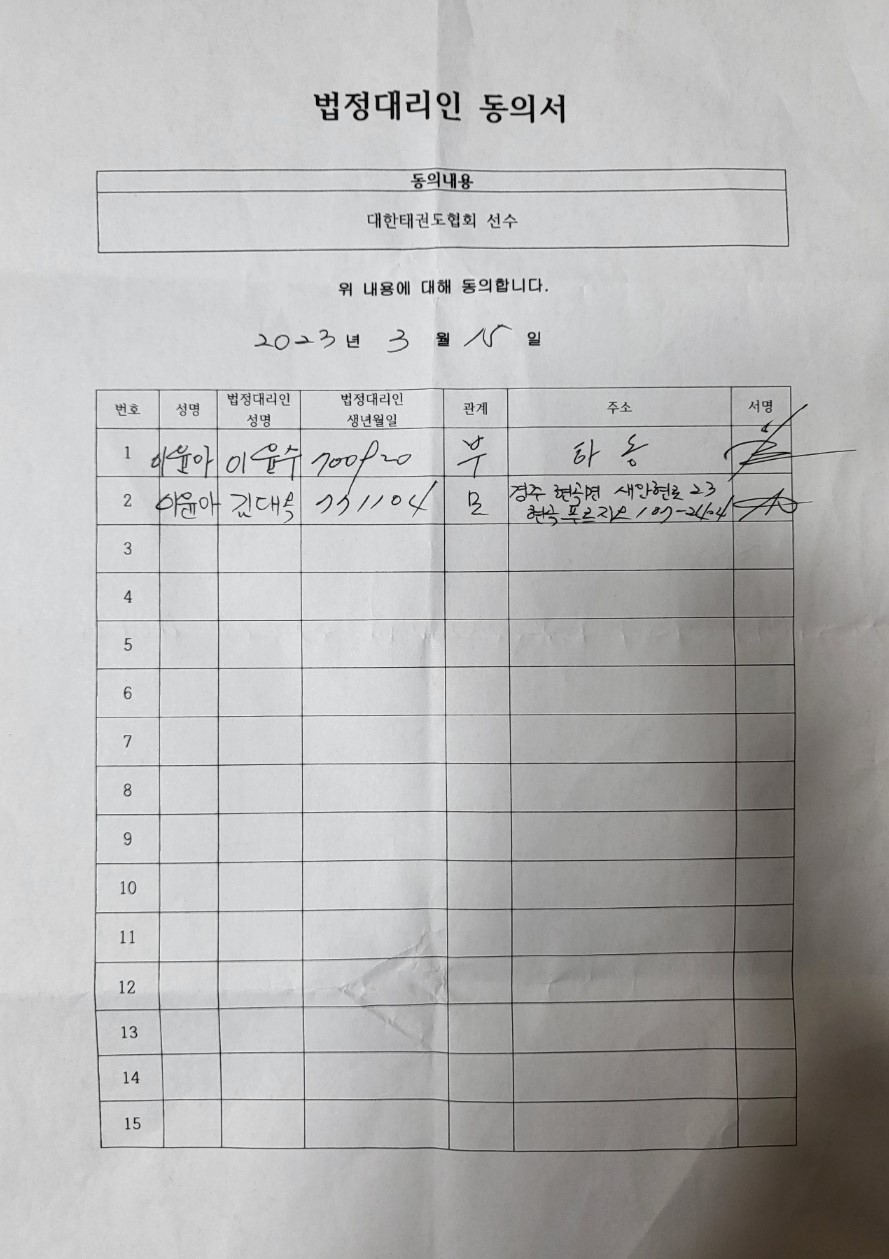 법정대리인 동의서
동의내용
대한태권도협회 선수
위 내용에 대해 동의합니다.
2023 년 3 월 15 일
번호 성명 법정대리인 성명 법정대리인 생년월일 관계 주소 서명
1 이윤아 이윤수 부 하동
2 이윤아 김대옥 771104 모 경주 현곡면 새안현로 23
현곡푸르지오 107-2404
3
4
5
6
7
8
9
10
11
12
13
14
15